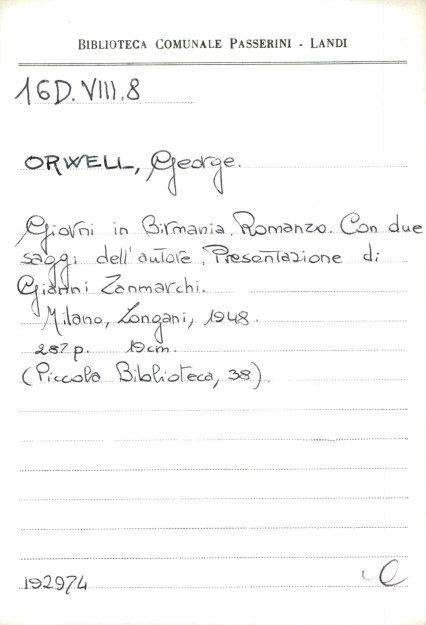 BIBLIOTECA COMUNALE PASSERINI - LANDI
16D.VIII.8
ORWELL, George.
Giorni in Birmania. Romanzo. Con due
saggi dell'autore. Presentazione di
Gianni Zanmarchi.
Milano, Longani, 1948.
282 p. 19cm.
(Piccola Biblioteca, 38).
192974